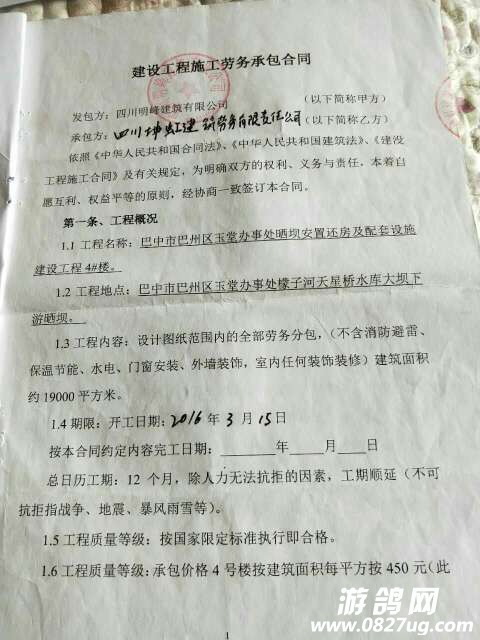 建设工程施工劳务承包合同
发包方：四川明峰建筑有限公司 （以下简称甲方）
承包方：四川坤虹建筑劳务有限责任公司（以下简称乙方）
依照《中华人民共和国合同法》、《中华人民共和国建筑法》、《建没
工程施工合同》及有关规定，为明确双方的权利、义务与责任，本着自
愿互利、权益平等的原则，经协商一致签订本合同。
第一条、工程概况
1.1 工程名称：巴中市巴州区玉堂办事处晒坝安置还房及配套设施
建设工程 4#楼。
1.2 工程地点：巴中市巴州区玉堂办事处檬子河天星桥水库大坝下
游晒坝。
1.3 工程内容：设计图纸范围内的全部劳务分包，（不含消防避雷、
保温节能、水电、门窗安装、外墙装饰，室内任何装饰装修）建筑面积
约 19000 平方米。
1.4 期限：开工日期：2016 年 3 月 15 日
按本合同约定内容完工日期：________年_____月____日
总日历工期：12 个月，除人力无法抗拒的因素，工期顺延（不可
抗拒指战争、地震、暴风雨雪等）。
1.5 工程质量等级：按国家限定标准执行即合格。
1.6 工程质量等级：承包价格 4 号楼按建筑面积每平方按 450 元（此
1
游鸽网
www.0827ug.com